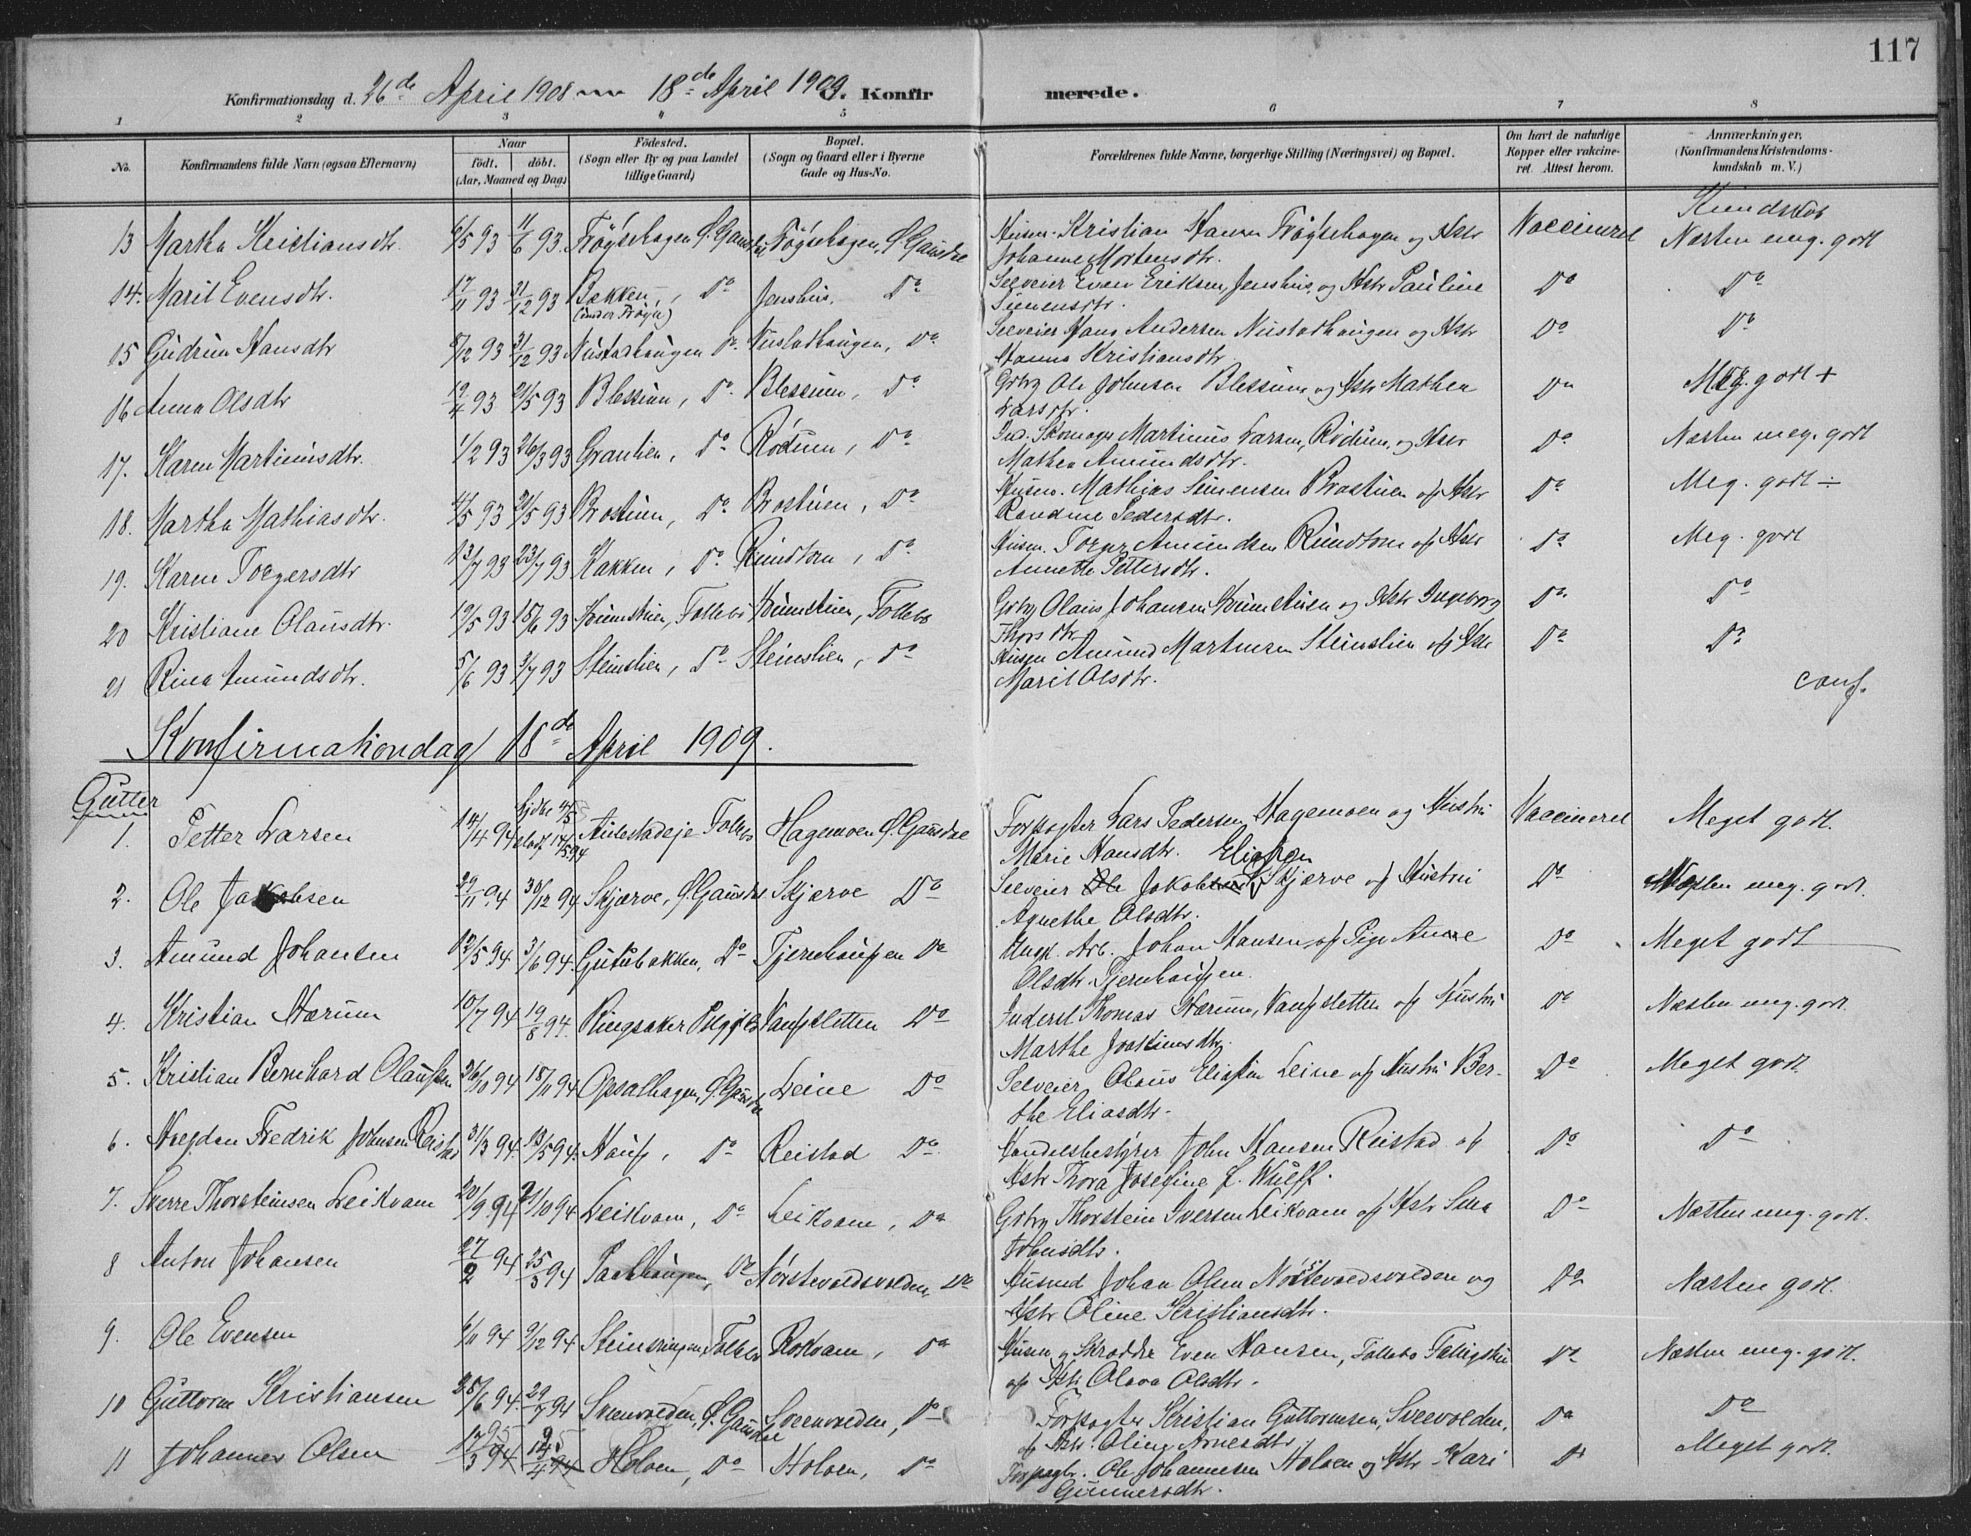 117
Konfirmationsdag d. 26de April 1908 18de April 1909 C. Konfirmerede.
1 2 3 4 5 6 7 8
No. Konfirmandens fulde Navn (ogsaa Efternavn) Naar født. døbt. (Aar, Maaned og Dag) Fødested. (Sogn eller By og paa Landet tillige Gaard) Bopæl. (Sogn og Gaard eller i Byerne Gade og Hus-No. Forældrenes fulde Navne, borgerlige Stilling (Næringsvei) og Bopæl. Om havt de naturlige Kopper eller vaccineret. Attest herom. Anmerkninger. (Konfirmandens Kristendomskundskab m. V.)
Kundskab
13 Martha Kristiansdtr. 6/5 93 11/6 93. Frøysehagen Ø. Gausdal Frøysehagen, Ø. Gausdal Husm. Kristian Hansen Frøysehagen og Hstr Vaccineret Næsten meg. godt
Johanne Mortensdtr.
14. Marit Evensdtr. 17/11 93 31/12 93 Bakken, Do Jenshus, Do Selveier Even Eriksen, Jenshus, og Hstr Pauline Do Do
(under Frøyse) Simensdtr.
15 Gudrun Hansdtr 8/12 93 31/12 93 Nustadhaugen Do Nustadhaugen, Do Selveier Hans Andersen Nustadhaugen og Hstr Do Do
Hanna Kristiansdtr.
16 Anna Olsdtr 19/4 93 21/5 93 Blessum, Do Blessum, Do Gbrg Ole Johnsen Blessum og Hstr Mathea Do Meg. godt +
Larsdtr.
17. Karen Martinusdtr. 1/2 93 26/3 93 Granlien, Do Rødum, Do Ind. Skomager Martinus Larsen, Rødum, og Hstr Do Næsten meg. godt
Mathea Amundsdtr.
18. Martha Mathiasdtr. 4/5 93 21/5 93 Brostuen, Do Brostuen, Do Husm. Mathias Simensen Brostuen og Hstr Do Meg. godt ÷
Randine Pedersdtr.
19. Karen Torgersdtr 13/7 93 23/7 93 Hakken, Do Rundtom, Do Husm. Torger Amundsen Rundtom og Hstr Do Meg. godt
Annette Pettersdtr.
20 Kristiane Olausdtr. 19/5 93 18/6 93 Follebo Follebo Gbrg Olaus Johansen og Hstr Ingeborg Do Do
Thorsdtr.
21 Rina Amundsdtr. 5/6 93 2/7 93 Steinslien, Do Steinslien, Do Husm Amund Martinsen Steinslien og Hstr Do Do
Marit Olsdtr. conf.
Konfirmationdag 18de April 1909.
Gutter
1. Petter Larsen 14/4 94 Aulestadeje Follebo Hagemoen Ø. Gausdal Forpagter Lars Pedersen Hagemoen og Hustru Vaccineret Meget godt.
Marie Hansdtr.
2. Ole Jakobsen 29/11 94 30/12 94 Skjærve, Ø. Gausdal Skjærve Do Selveier Ole Jakob Eliassen Skjærve og Hustru Do Næsten meg. godt.
Agnethe Olsdtr.
3. Amund Johansen 12/5 94 3/6 94. Gutubakken, Do Tjernhaugen Do Ungk. Arb. Johan Hansen, og Pige Anne Do Meget godt
Olsdtr. Tjernhaugen.
4. Kristian Nærum 10/7 94 19/8 94. Ringsaker Prgjld Vangsletten Do Inderst Thomas Nærum, Vangsletten og Hustru Do Næsten meg. godt.
Marthe Joakimsdtr.
5. Kristian Bernhard Olaussen 26/10 94 18/11 94 Opsalhagen, Ø. Gausdal Leine Do Selveier Olaus Eliassen Leine og Hustru Ber- Do Meget godt.
the Eliasdtr.
6. Fredrik Johnsen Reistad 31/3 94. 13/5 94. Haug, Do Reistad Do Handelsbestyrer John Hansen Reistad og Do Do
Hstr Thora Josefine f. Wulff.
7. Sverre Thorsteinsen Leikvam 20/9 94 21/10 94 Leikvam, Do Leikvam, Do Gbrg Thorstein Iversen Leikvam og Hstr Sina Do Næsten meg. godt.
Johnsdtr.
8 Anton Johansen 27/2 94 25/3 94 Paalshaugen, Do Nørstevoldsvolden, Do Husmd Johan Olsen Nørstevoldsvolden og Do Næsten godt.
Hstr Oline Kristiansdtr.
9. Ole Evensen 6/11 94 9/12 94 Follebo Rokvam, Do Husm. og Skrædder Even Hansen, Follebo Do Næsten meg. godt.
og Hstr Olava Olsdtr.
10 Guttorm Kristiansen 25/6 94. 29/7 94 Sveevolden, Ø. Gausdal Sveevolden, Do Forpagter Kristian Guttormsen, Sveevolden, Do Do
og Hstr. Oline Arnesdtr
11 Johannes Olsen 17/3 95 94 Holoen, Do Holoen, Do Forpagtr. Ole Johannesen Holoen og Hstr Kari Do Meget godt.
Gunnersdtr.